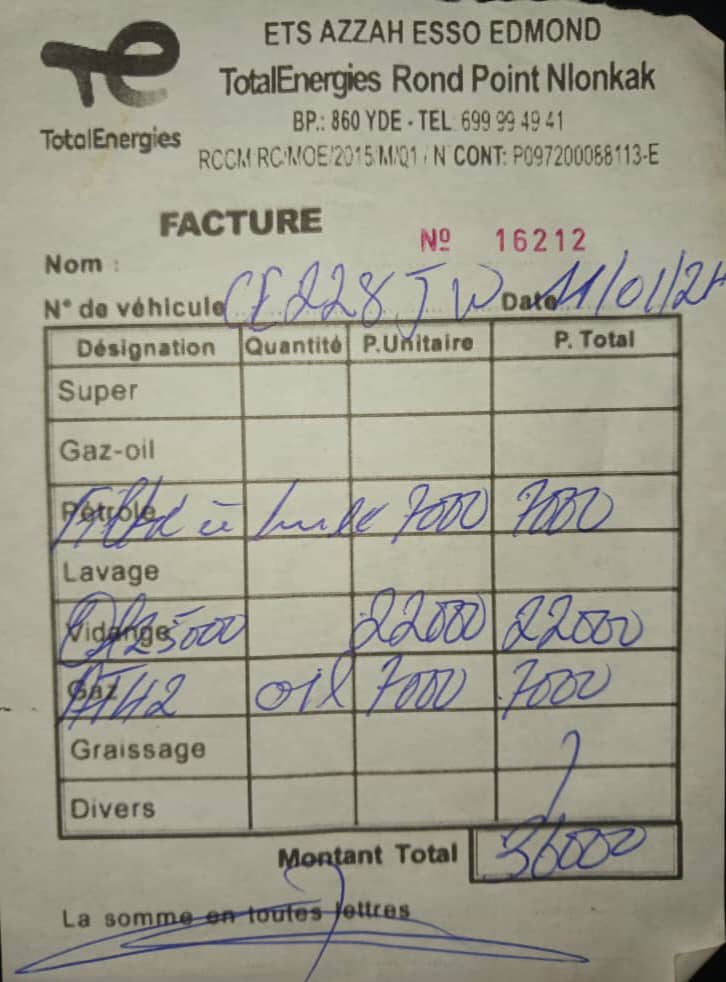 TotalEnergies
ETS AZZAH ESSO EDMOND
TotalEnergies Rond Point Nlonkak
BP.: 860 YDE - TEL: 699 99 49 41
RCCM RC/MOE/2015/M/Q1 / N° CONT: P097200088113-E
FACTURE
Nº 16212
Nom :
N° de véhicule CE228JW Date 11/01/24
Désignation Quantité P.Unitaire P. Total
Super
Gaz-oil
Pétrole
Filtre à huile 7000 7000
Lavage
Vidange 22000 22000
Gaz oil 7000 7000
Graissage
Divers
Montant Total 36000
La somme en toutes lettres